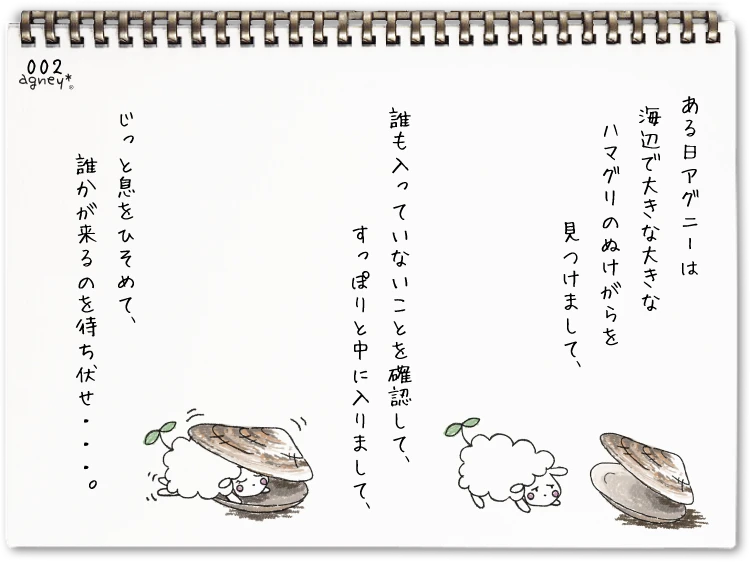 002
agney*®
ある日アグニーは
海辺で大きな大きな
ハマグリのぬけがらを
見つけまして、
誰も入っていないことを確認して、
すっぽりと中に入りまして、
じっと息をひそめて、
誰かが来るのを待ち伏せ・・・・。